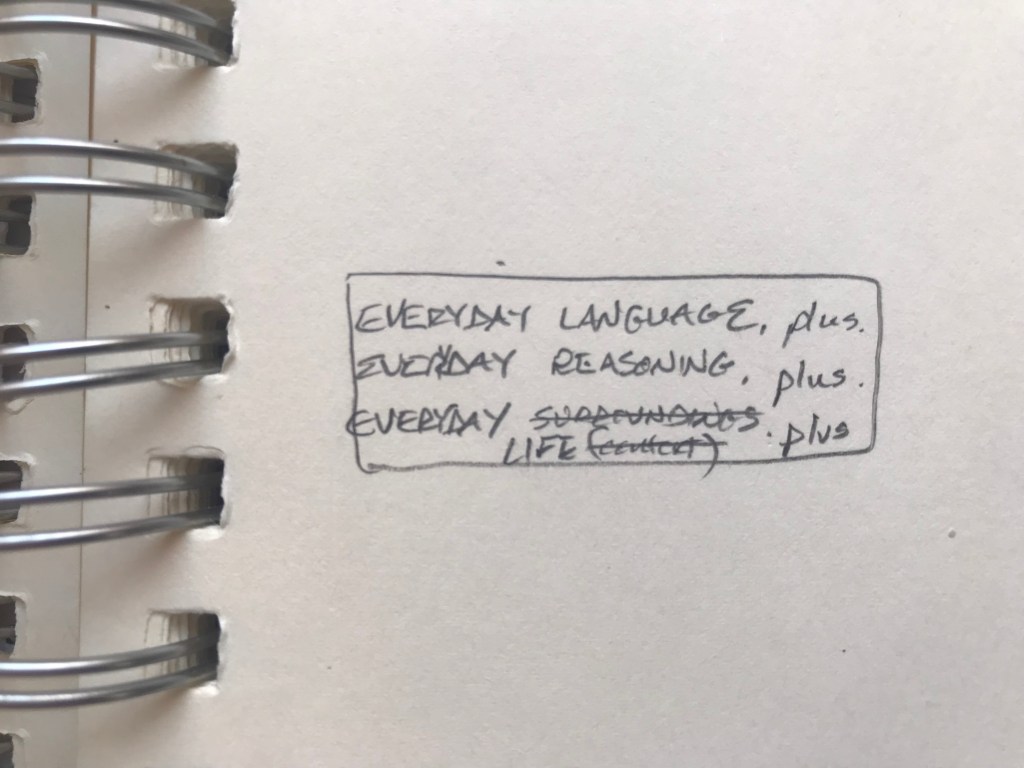 EVERYDAY LANGUAGE, plus.
EVERYDAY REASONING, plus.
EVERYDAY SURROUNDINGS . plus
LIFE (context)